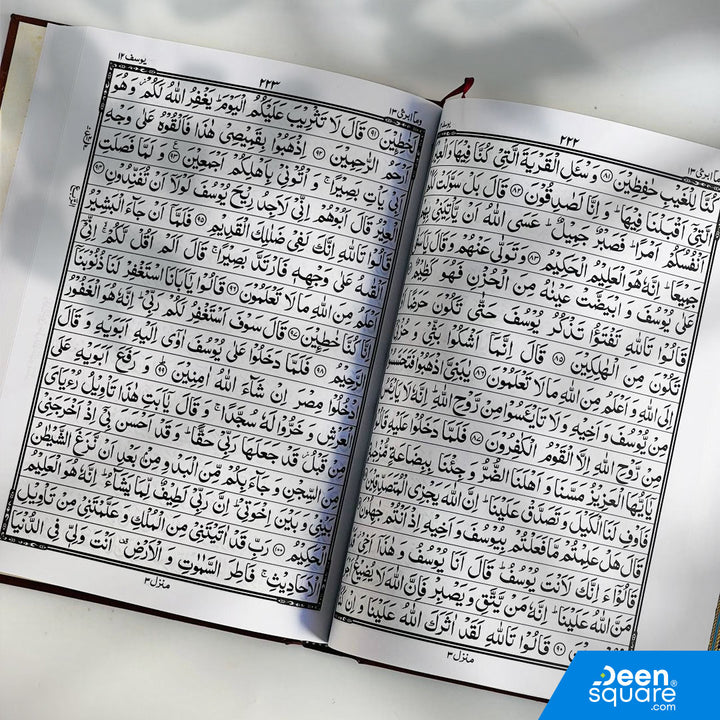 ٢٢٢
كُنَّا لِلْغَيْبِ حٰفِظِيْنَ ﴿٨١﴾ وَسْـَٔلِ الْقَرْيَةَ الَّتِيْ كُنَّا فِيْهَا
الَّتِيْٓ اَقْبَلْنَا فِيْهَا ؕ وَاِنَّا لَصٰدِقُوْنَ ﴿٨٢﴾ قَالَ بَلْ سَوَّلَتْ
اَنْفُسُكُمْ اَمْرًا ؕ فَصَبْرٌ جَمِيْلٌ ؕ عَسَى اللّٰهُ اَنْ يَّاْتِيَنِيْ
جَمِيْعًا ؕ اِنَّهٗ هُوَ الْعَلِيْمُ الْحَكِيْمُ ﴿٨٣﴾ وَتَوَلّٰى عَنْهُمْ وَقَالَ
عَلٰى يُوْسُفَ وَابْيَضَّتْ عَيْنٰهُ مِنَ الْحُزْنِ فَهُوَ كَظِيْمٌ
قَالُوْا تَاللّٰهِ تَفْتَؤُا تَذْكُرُ يُوْسُفَ حَتّٰى تَكُوْنَ
تَكُوْنَ مِنَ الْهٰلِكِيْنَ ﴿٨٥﴾ قَالَ اِنَّمَآ اَشْكُوْا بَثِّيْ
اِلَى اللّٰهِ وَاَعْلَمُ مِنَ اللّٰهِ مَا لَا تَعْلَمُوْنَ ﴿٨٦﴾ يٰبَنِيَّ اذْهَبُوْا
مِنْ يُّوْسُفَ وَاَخِيْهِ وَلَا تَايْـَٔسُوْا مِنْ رَّوْحِ اللّٰهِ ؕ اِنَّهٗ لَا
مِنْ رَّوْحِ اللّٰهِ اِلَّا الْقَوْمُ الْكٰفِرُوْنَ ﴿٨٧﴾ فَلَمَّا دَخَلُوْا عَلَيْهِ
يٰٓاَيُّهَا الْعَزِيْزُ مَسَّنَا وَاَهْلَنَا الضُّرُّ وَجِئْنَا بِبِضَاعَةٍ
فَاَوْفِ لَنَا الْكَيْلَ وَتَصَدَّقْ عَلَيْنَا ؕ اِنَّ اللّٰهَ يَجْزِي الْمُتَصَدِّقِيْنَ
قَالَ هَلْ عَلِمْتُمْ مَّا فَعَلْتُمْ بِيُوْسُفَ وَاَخِيْهِ اِذْ اَنْتُمْ
قَالُوْٓا ءَاِنَّكَ لَاَنْتَ يُوْسُفُ ؕ قَالَ اَنَا يُوْسُفُ وَهٰذَآ
مَنَّ اللّٰهُ عَلَيْنَا ؕ اِنَّهٗ مَنْ يَّتَّقِ وَيَصْبِرْ فَاِنَّ اللّٰهَ لَا يُضِيْعُ
﴿٩٠﴾ قَالُوْا تَاللّٰهِ لَقَدْ اٰثَرَكَ اللّٰهُ عَلَيْنَا وَاِنْ
منزل ٣
وما ابرئ ١٣
٢٢٣
يوسف ١٢
لَخٰطِـِٕيْنَ ﴿٩١﴾ قَالَ لَا تَثْرِيْبَ عَلَيْكُمُ الْيَوْمَ ؕ يَغْفِرُ اللّٰهُ لَكُمْ ؗ وَهُوَ
اَرْحَمُ الرّٰحِمِيْنَ ﴿٩٢﴾ اِذْهَبُوْا بِقَمِيْصِيْ هٰذَا فَاَلْقُوْهُ عَلٰى وَجْهِ
اَبِيْ يَاْتِ بَصِيْرًا ۚ وَاْتُوْنِيْ بِاَهْلِكُمْ اَجْمَعِيْنَ ﴿٩٣﴾ وَلَمَّا فَصَلَتِ
الْعِيْرُ قَالَ اَبُوْهُمْ اِنِّيْ لَاَجِدُ رِيْحَ يُوْسُفَ لَوْلَآ اَنْ تُفَنِّدُوْنِ ﴿٩٤﴾
قَالُوْا تَاللّٰهِ اِنَّكَ لَفِيْ ضَلٰلِكَ الْقَدِيْمِ ﴿٩٥﴾ فَلَمَّآ اَنْ جَآءَ الْبَشِيْرُ
اَلْقٰىهُ عَلٰى وَجْهِهٖ فَارْتَدَّ بَصِيْرًا ۚ قَالَ اَلَمْ اَقُلْ لَّكُمْ ۙ اِنِّيْٓ
اَعْلَمُ مِنَ اللّٰهِ مَا لَا تَعْلَمُوْنَ ﴿٩٦﴾ قَالُوْا يٰٓاَبَانَا اسْتَغْفِرْ لَنَا ذُنُوْبَنَآ
اِنَّا كُنَّا خٰطِـِٕيْنَ ﴿٩٧﴾ قَالَ سَوْفَ اَسْتَغْفِرُ لَكُمْ رَبِّيْ ؕ اِنَّهٗ هُوَ الْغَفُوْرُ
الرَّحِيْمُ ﴿٩٨﴾ فَلَمَّا دَخَلُوْا عَلٰى يُوْسُفَ اٰوٰٓى اِلَيْهِ اَبَوَيْهِ وَقَالَ
ادْخُلُوْا مِصْرَ اِنْ شَآءَ اللّٰهُ اٰمِنِيْنَ ﴿٩٩﴾ وَرَفَعَ اَبَوَيْهِ عَلَى
الْعَرْشِ وَخَرُّوْا لَهٗ سُجَّدًا ۚ وَقَالَ يٰٓاَبَتِ هٰذَا تَاْوِيْلُ رُءْيَايَ
مِنْ قَبْلُ ؗ قَدْ جَعَلَهَا رَبِّيْ حَقًّا ؕ وَقَدْ اَحْسَنَ بِيْٓ اِذْ اَخْرَجَنِيْ
مِنَ السِّجْنِ وَجَآءَ بِكُمْ مِّنَ الْبَدْوِ مِنْۢ بَعْدِ اَنْ نَّزَغَ الشَّيْطٰنُ
بَيْنِيْ وَبَيْنَ اِخْوَتِيْ ؕ اِنَّ رَبِّيْ لَطِيْفٌ لِّمَا يَشَآءُ ؕ اِنَّهٗ هُوَ الْعَلِيْمُ
الْحَكِيْمُ ﴿١٠٠﴾ رَبِّ قَدْ اٰتَيْتَنِيْ مِنَ الْمُلْكِ وَعَلَّمْتَنِيْ مِنْ تَاْوِيْلِ
الْاَحَادِيْثِ ۚ فَاطِرَ السَّمٰوٰتِ وَالْاَرْضِ ۫ اَنْتَ وَلِيّٖ فِي الدُّنْيَا
منزل ٣
Deen
square®
.com